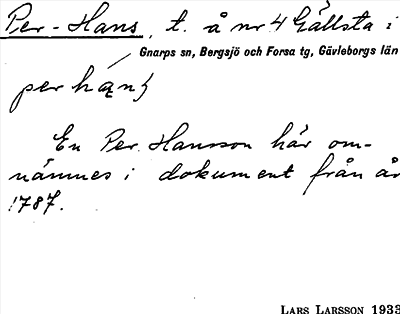 Per-Hans, t. å nr 4 Gällsta i
Gnarps sn, Bergsjö och Forsa tg, Gävleborgs län
En Per Hansson här om-
nämnes i dokument från år
1787.
LARS LARSSON 1933